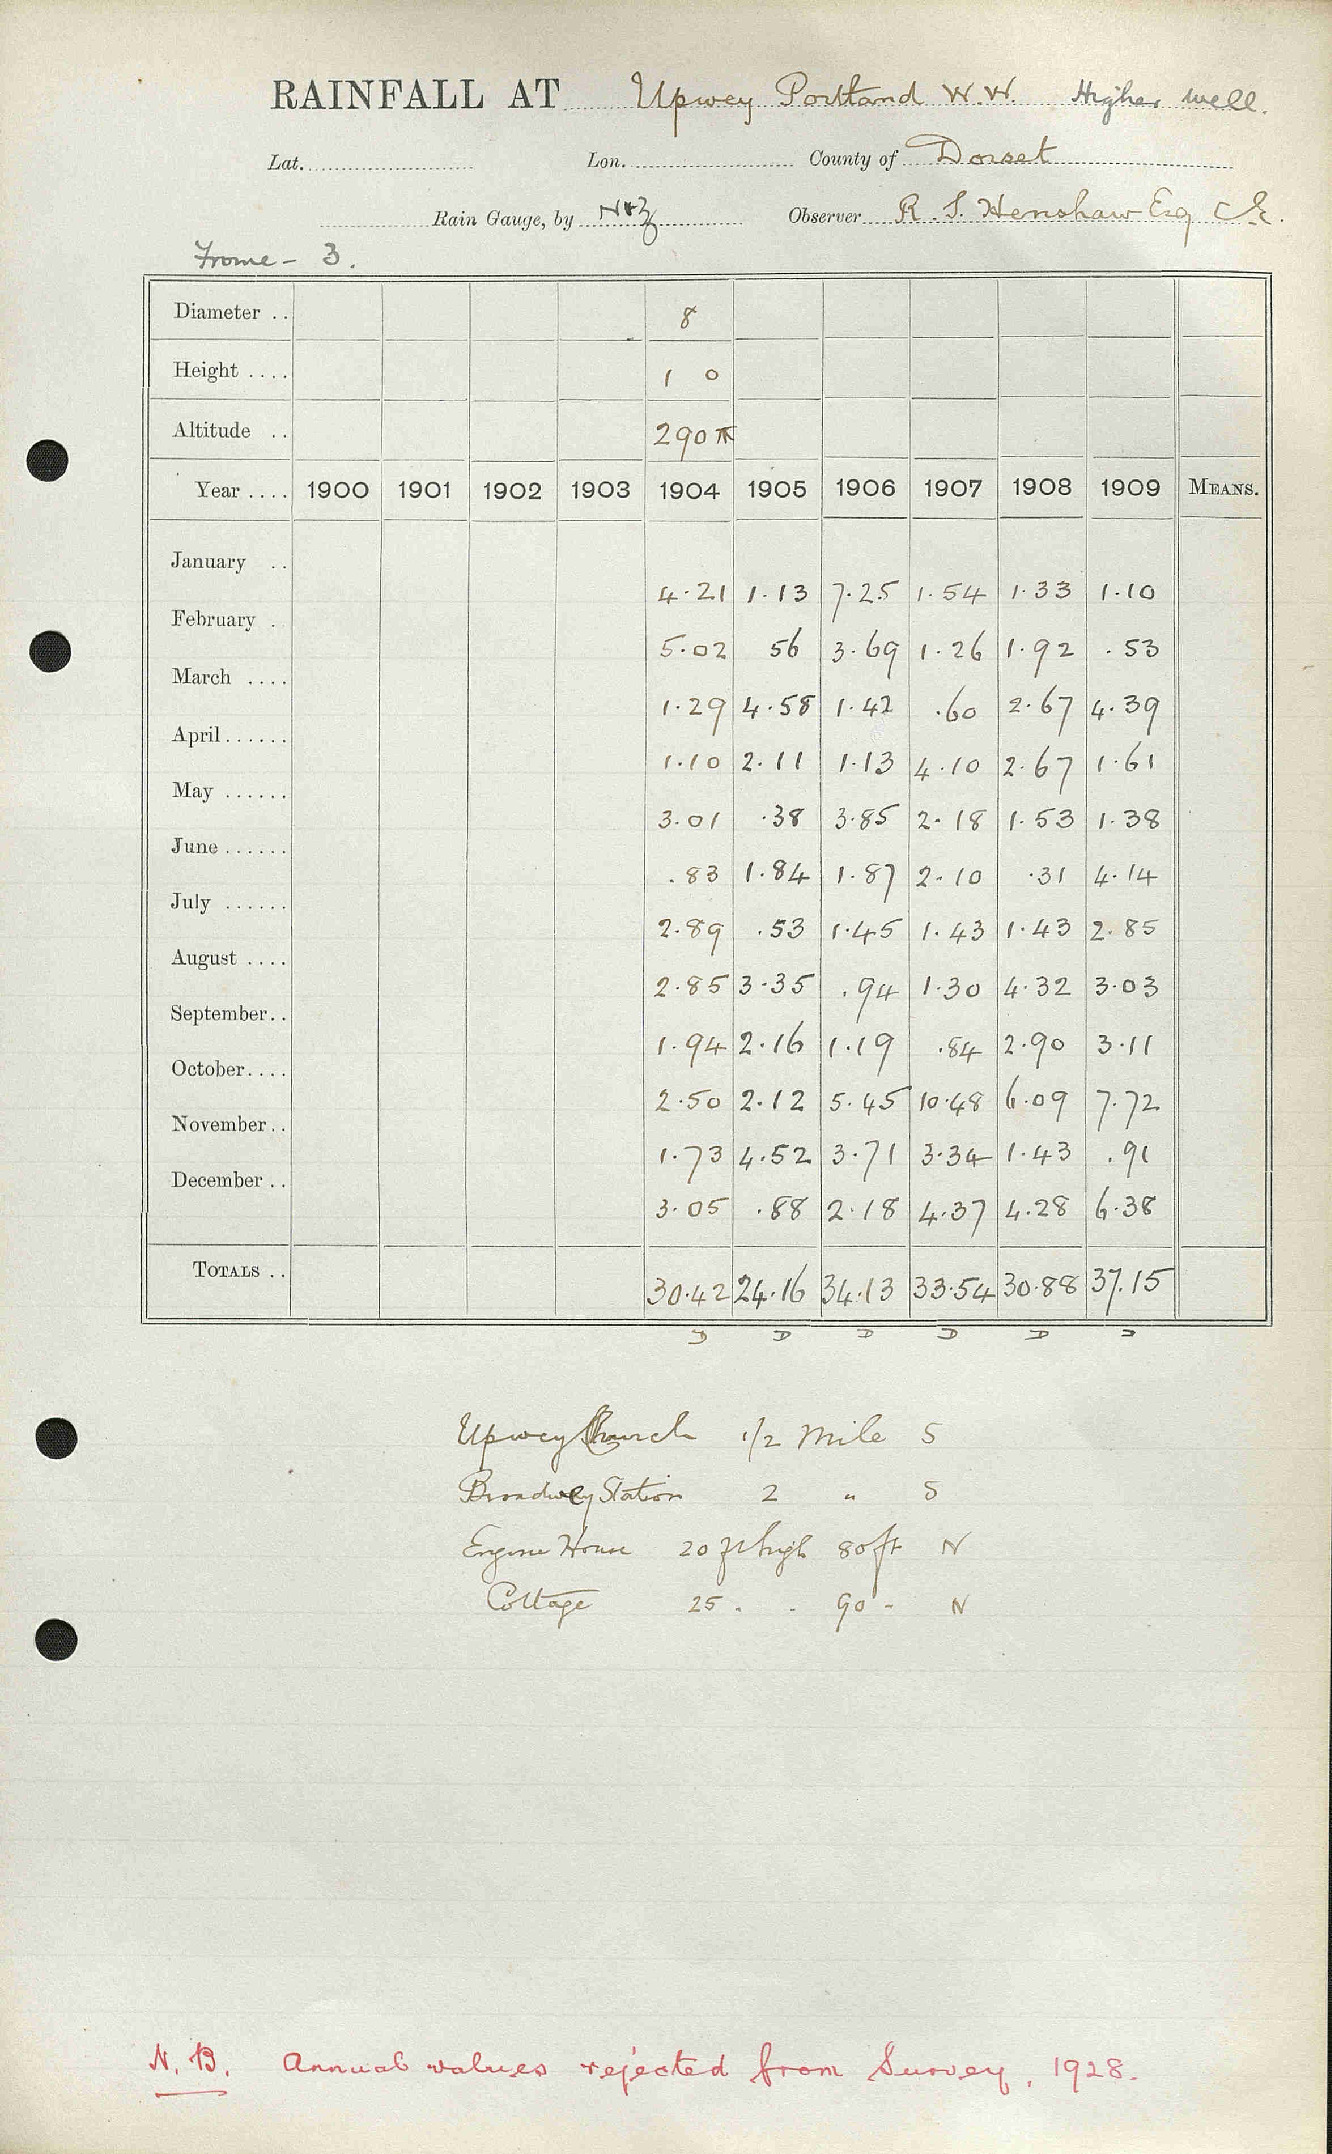 RAINFALL AT Upwey Portland W.W. Higher Well.
Lat. Lon. County of Dorset
Rain Gauge, by N & Z Observer R. S. Henshaw Esq C.E.
Frome - 3.
Diameter .. 8
Height .... 1 0
Altitude .. 290
Year .... 1900 1901 1902 1903 1904 1905 1906 1907 1908 1909 MEANS.
January .. 4.21 1.13 7.25 1.54 1.33 1.10
February . 5.02 56 3.69 1.26 1.92 .53
March .... 1.29 4.58 1.42 .60 2.67 4.39
April ...... 1.10 2.11 1.13 4.10 2.67 1.61
May ...... 3.01 .38 3.85 2.18 1.53 1.38
June ...... .83 1.84 1.87 2.10 .31 4.14
July ...... 2.89 .53 1.45 1.43 1.43 2.85
August .... 2.85 3.35 .94 1.30 4.32 3.03
September.. 1.94 2.16 1.19 .84 2.90 3.11
October.... 2.50 2.12 5.45 10.48 6.09 7.72
November.. 1.73 4.52 3.71 3.34 1.43 .91
December .. 3.05 .88 2.18 4.37 4.28 6.38
TOTALS .. 30.42 24.16 34.13 33.54 30.88 37.15
D D D D D D
Upwey Church 1/2 Mile S
Broadwey Station 2 " S
Engine House 20 ft high 80 ft N
Cottage 25 . . 90 - N
N.B. Annual values rejected from Survey, 1928.